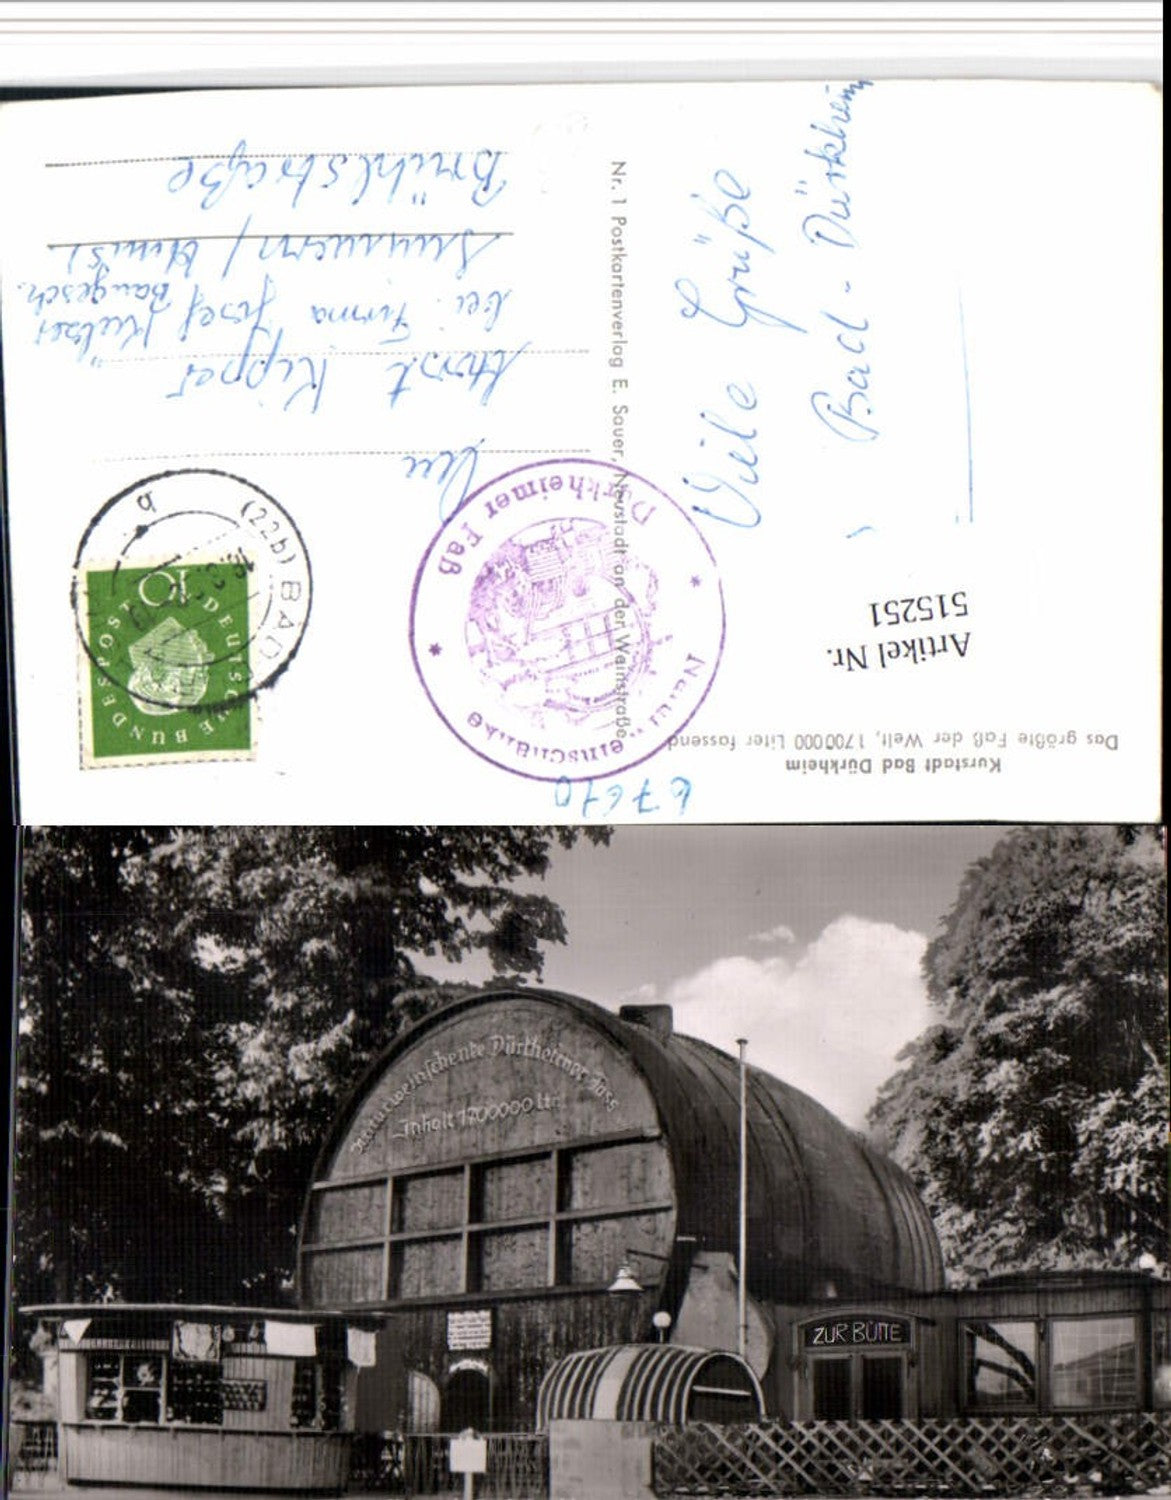 Kurstadt Bad Dürkheim
Das größte Faß der Welt, 1700000 Liter fassend
67610
Artikel Nr.
515251
Viele Grüße
Bad - Dürkheim
Nr. 1 Postkartenverlag E. Sauer, Neustadt an der Weinstraße
Dürkheimer Faß
DEUTSCHE BUNDESPOST
10
(22b) BAD
a
Horst Kipper
bei Firma Josef
Baugesch.
Brühlstraße
Naturweinschenke Dürkheimer Fass
Inhalt 1700000 Ltr.
ZUR BÜTTE